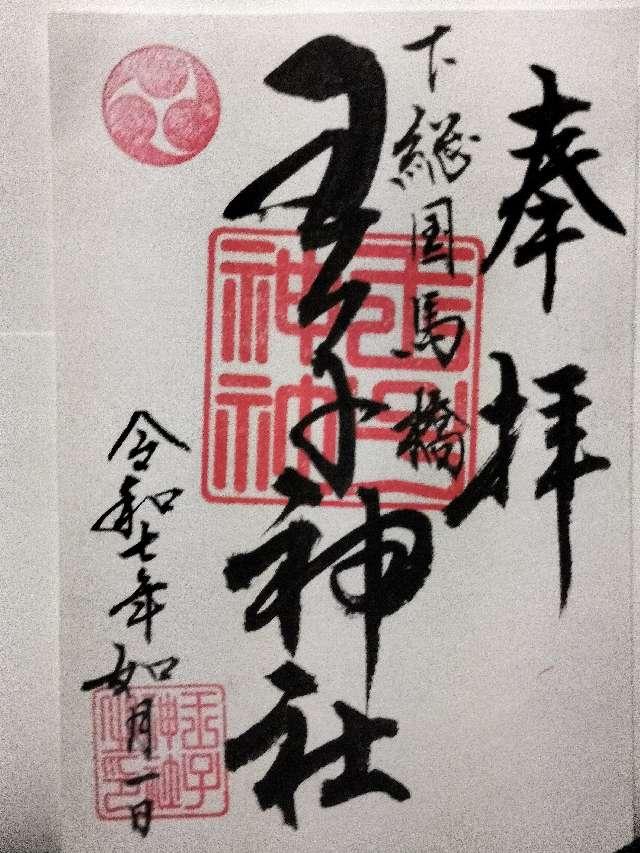 奉拝
下総国馬橋
王子神社
令和七年如月一日
王子神社